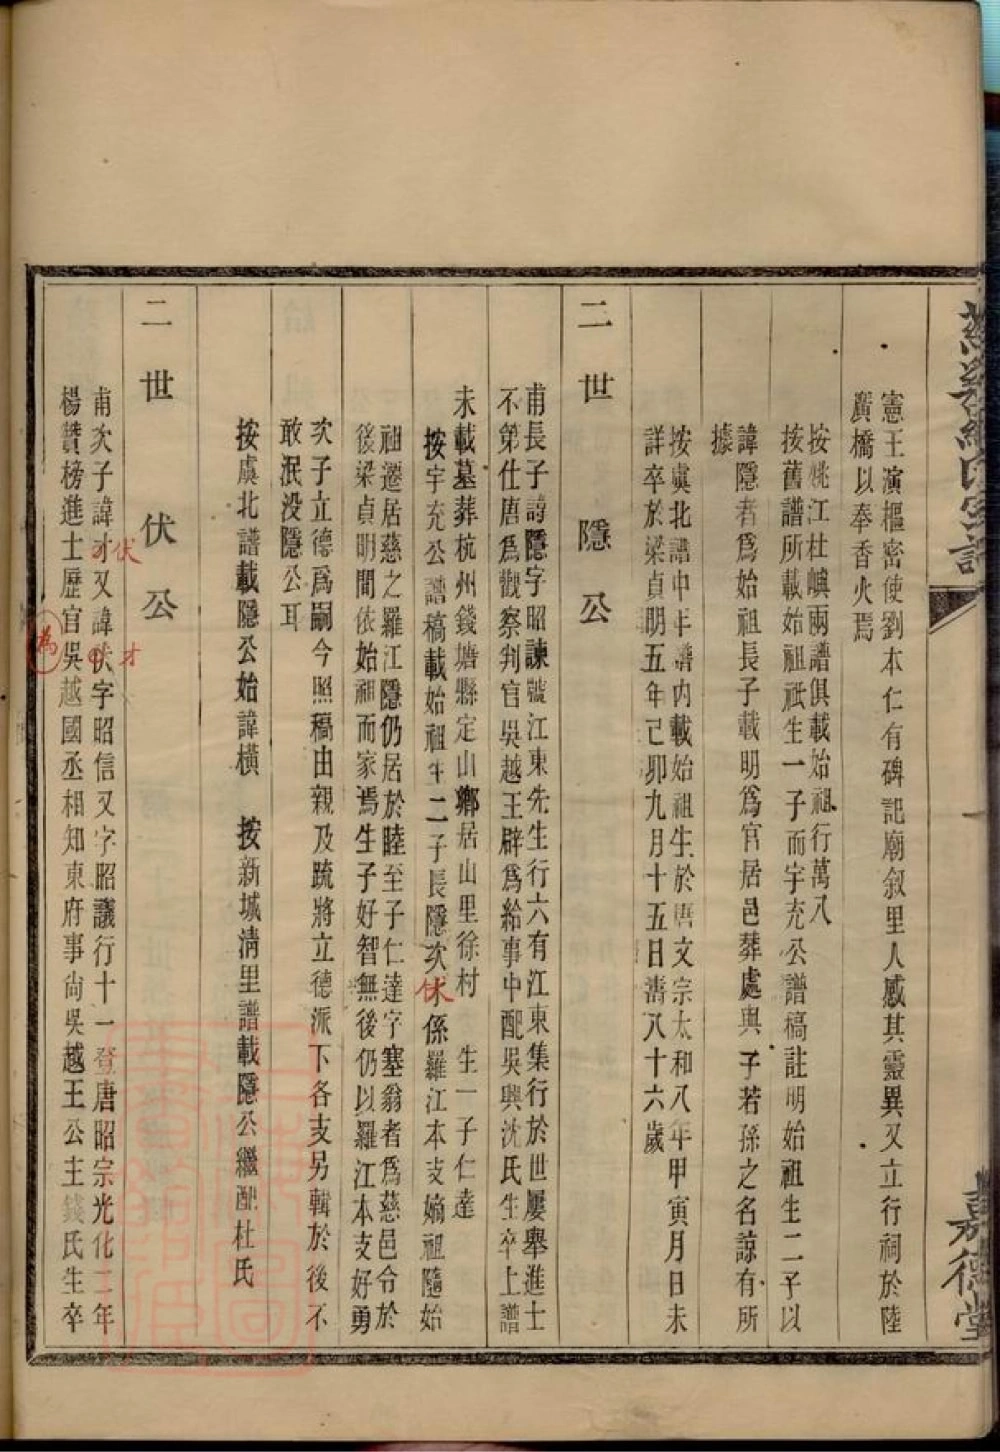 憲王演樞密使劉本仁有碑記廟叙里人感其靈異又立行祠於陸
廣橋以奉香火焉
按姚江杜嶼兩譜俱載始祖行萬八
按舊譜所載始祖祇生一子而宇充公譜稿註明始祖生二子以
諱隱者爲始祖長子載明爲官居邑葬處與子若孫之名諒有所
據
按虞北譜中年譜內載始祖生於唐文宗太和八年甲寅月日未
詳卒於梁貞明五年己卯九月十五日壽八十六歲
二世 隱公
甫長子諱隱字昭諫號江東先生行六有江東集行於世屢舉進士
不第仕唐爲觀察判官吳越王辟爲給事中配吳興沈氏生卒上譜
未載墓葬杭州錢塘縣定山鄉居山里徐村 生一子仁達
按宇充公譜稿載始祖生二子長隱次伏係羅江本支嫡祖隨始
祖遷居慈之羅江隱仍居於陸至子仁達字塞翁者爲慈邑令於
後梁貞明間依始祖而家焉生子好智無後仍以羅江本支好勇
次子立德爲嗣今照稿由親及疏將立德派下各支另輯於後不
敢泯没隱公耳
按虞北譜載隱公始諱橫 按新城淸里譜載隱公繼配杜氏
二世 伏公
甫次子諱才又諱伏字昭信又字昭議行十一登唐昭宗光化二年
楊贊榜進士歷官吳越國丞相知東府事尙吳越王公主錢氏生卒
伏
才
爲
嘉德堂